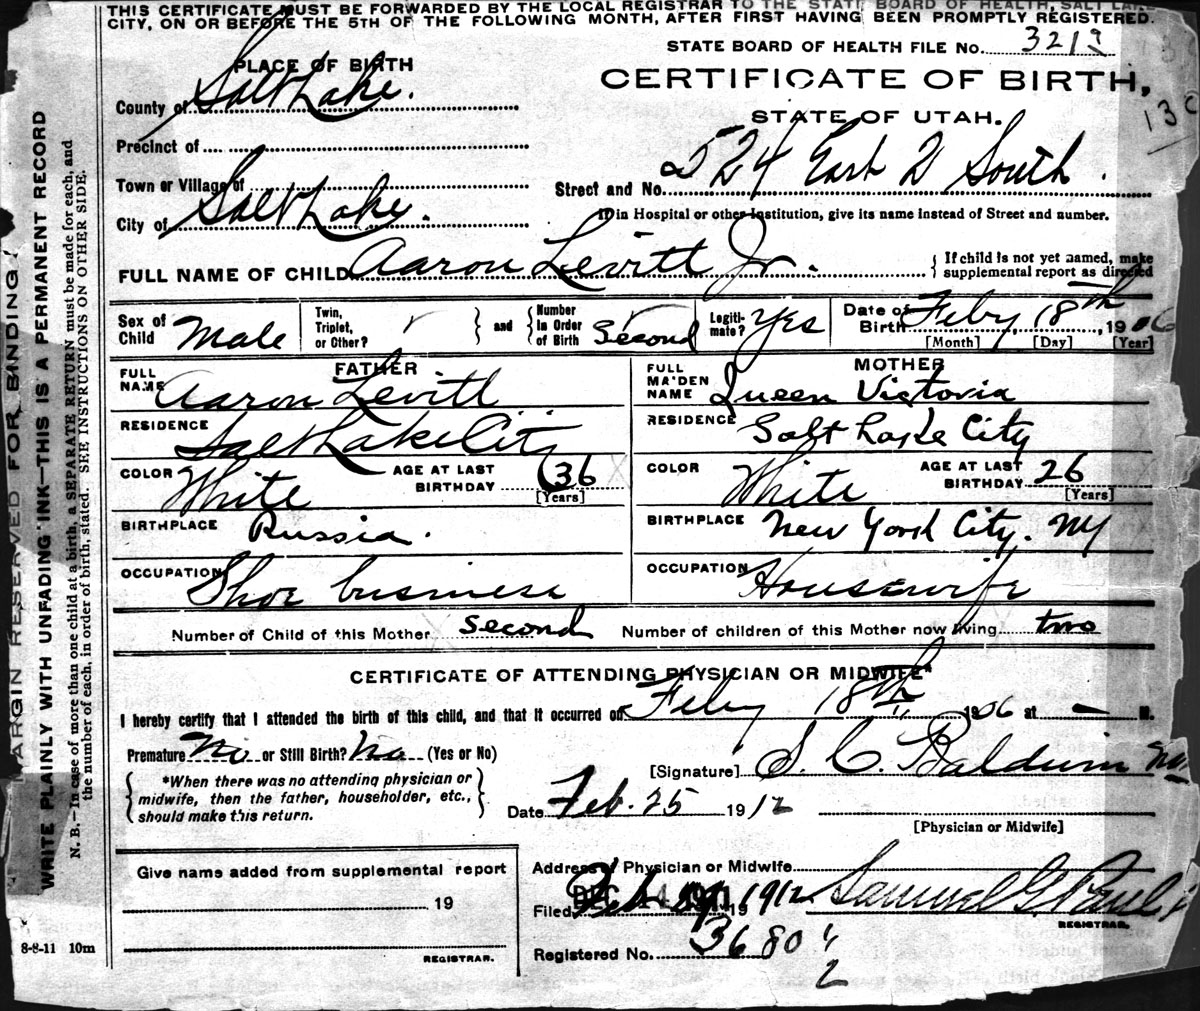 THIS CERTIFICATE MUST BE FORWARDED BY THE LOCAL REGISTRAR TO THE STATE BOARD OF HEALTH, SALT LAKE
CITY, ON OR BEFORE THE 5TH OF THE FOLLOWING MONTH, AFTER FIRST HAVING BEEN PROMPTLY REGISTERED.
STATE BOARD OF HEALTH FILE No. 3213
PLACE OF BIRTH
CERTIFICATE OF BIRTH,
STATE OF UTAH.
County of Salt Lake.
Precinct of
Town or Village of
Street and No. 524 East 2 South.
City of Salt Lake.
If in Hospital or other Institution, give its name instead of Street and number.
FULL NAME OF CHILD Aaron Levitt Jr.
If child is not yet named, make
supplemental report as directed
Sex of Child Male
Twin, Triplet, or Other?
and
Number in Order of Birth Second
Legiti- mate? Yes
Date of Birth Feby 18th, 1906
[Month] [Day] [Year]
FATHER
FULL NAME Aaron Levitt
RESIDENCE Salt Lake City
COLOR White
AGE AT LAST BIRTHDAY 36
[Years]
BIRTHPLACE Russia.
OCCUPATION Shoe business
MOTHER
FULL MAIDEN NAME Queen Victoria
RESIDENCE Salt Lake City
COLOR White
AGE AT LAST BIRTHDAY 26
[Years]
BIRTHPLACE New York City. NY
OCCUPATION Housewife
Number of Child of this Mother second
Number of children of this Mother now living two
CERTIFICATE OF ATTENDING PHYSICIAN OR MIDWIFE*
I hereby certify that I attended the birth of this child, and that it occurred on Feby 18th 1906 at — M.
Premature No or Still Birth? No (Yes or No)
*When there was no attending physician or
midwife, then the father, householder, etc.,
should make this return.
[Signature] S. C. Baldwin
Date Feb. 25 1912
[Physician or Midwife]
Give name added from supplemental report
19
REGISTRAR.
Address of Physician or Midwife
Filed DEC 1911 Feb 1912 19
Samuel G. Paul
REGISTRAR.
Registered No. 3680 1/2
8-8-11 10m
MARGIN RESERVED FOR BINDING
WRITE PLAINLY WITH UNFADING INK—THIS IS A PERMANENT RECORD
N. B.—In case of more than one child at a birth, a SEPARATE RETURN must be made for each, and
the number of each, in order of birth, stated. SEE INSTRUCTIONS ON OTHER SIDE.